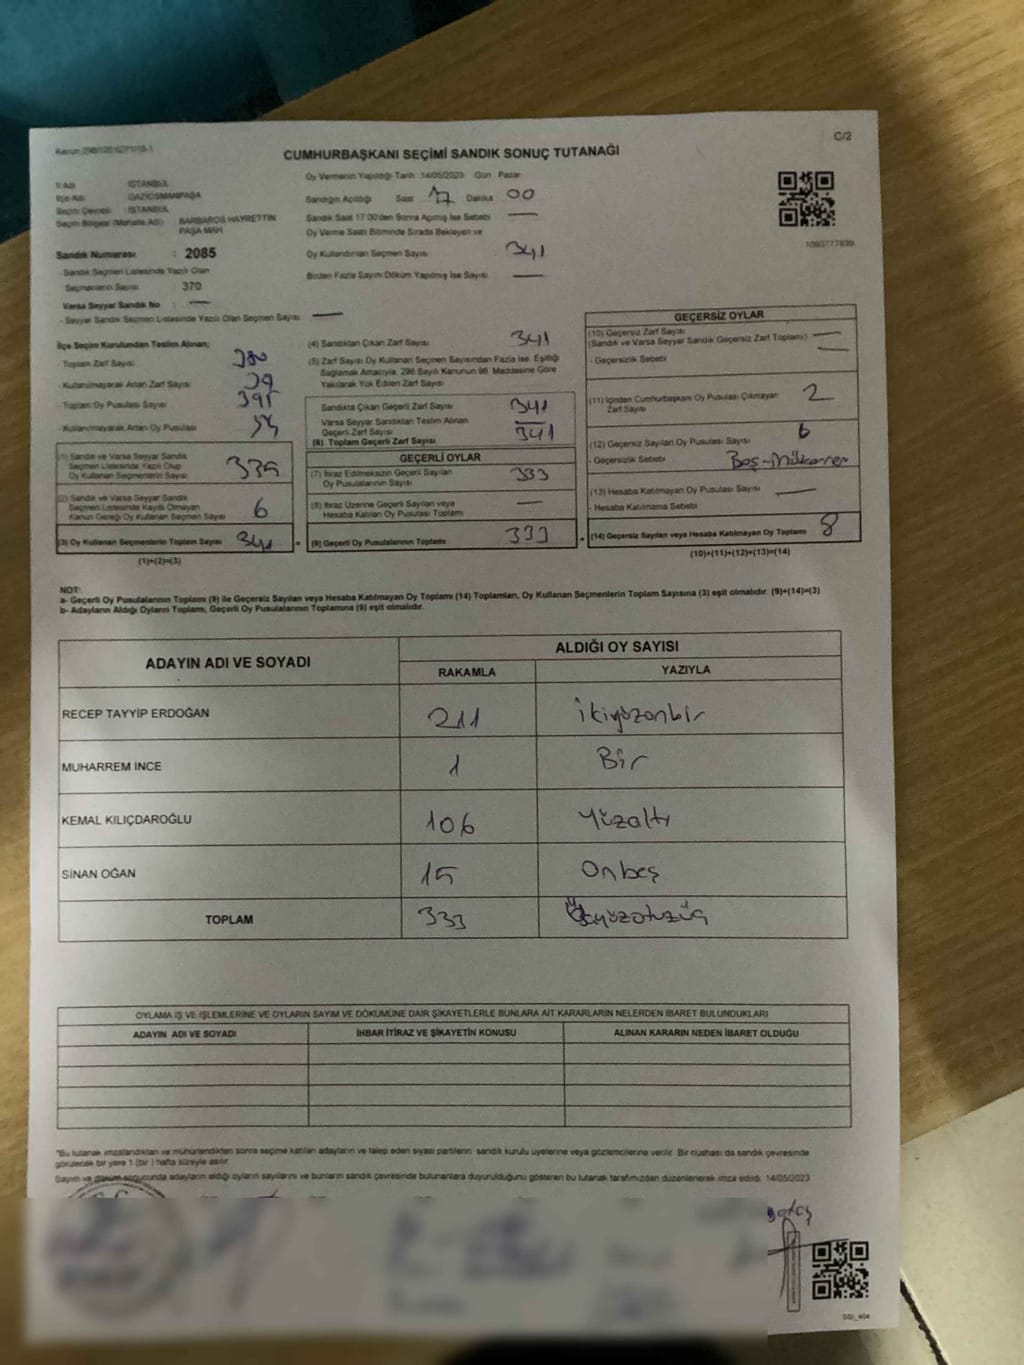 C/2
CUMHURBAŞKANI SEÇİMİ SANDIK SONUÇ TUTANAĞI
İl Adı : İSTANBUL
İlçe Adı : GAZİOSMANPAŞA
Seçim Çevresi : İSTANBUL
Seçim Bölgesi (Mahalle Adı) : BARBAROS HAYRETTİN PAŞA MAH
Sandık Numarası : 2085
- Sandık Seçmen Listesinde Yazılı Olan
Seçmenlerin Sayısı 370
Varsa Seyyar Sandık No : —
- Seyyar Sandık Seçmen Listesinde Yazılı Olan Seçmen Sayısı —
Oy Vermenin Yapıldığı Tarih 14/05/2023 Gün Pazar
Sandığın Açıldığı Saat 17 Dakika 00
Sandık Saat 17:00'den Sonra Açılmış İse Sebebi —
Oy Verme Saati Bitiminde Sırada Bekleyen ve
Oy Kullandırılan Seçmen Sayısı 341
Birden Fazla Sayım Döküm Yapılmış İse Sayısı —
1093777039
İlçe Seçim Kurulundan Teslim Alınan;
- Toplam Zarf Sayısı
- Kullanılmayarak Artan Zarf Sayısı
- Toplam Oy Pusulası Sayısı
- Kullanılmayarak Artan Oy Pusulası
(1) Sandık ve Varsa Seyyar Sandık
Seçmen Listesinde Yazılı Olup
Oy Kullanan Seçmenlerin Sayısı 335
(2) Sandık ve Varsa Seyyar Sandık
Seçmen Listesinde Kayıtlı Olmayan
Kanun Gereği Oy Kullanan Seçmen Sayısı 6
(3) Oy Kullanan Seçmenlerin Toplam Sayısı 341
(1)+(2)=(3)
(4) Sandıktan Çıkan Zarf Sayısı 341
(5) Zarf Sayısı Oy Kullanan Seçmen Sayısından Fazla İse, Eşitliği
Sağlamak Amacıyla, 298 Sayılı Kanunun 98. Maddesine Göre
Yakılarak Yok Edilen Zarf Sayısı
Sandıkta Çıkan Geçerli Zarf Sayısı 341
Varsa Seyyar Sandıktan Teslim Alınan
Geçerli Zarf Sayısı —
(6) Toplam Geçerli Zarf Sayısı 341
GEÇERLİ OYLAR
(7) İtiraz Edilmeksizin Geçerli Sayılan
Oy Pusulasının Sayısı 333
(8) İtiraz Üzerine Geçerli Sayılan veya
Hesaba Katılan Oy Pusulası Toplamı —
(9) Geçerli Oy Pusulalarının Toplamı 333
GEÇERSİZ OYLAR
(10) Geçersiz Zarf Sayısı —
(Sandık ve Varsa Seyyar Sandık Geçersiz Zarf Toplamı) —
- Geçersizlik Sebebi
(11) İçinden Cumhurbaşkanı Oy Pusulası Çıkmayan
Zarf Sayısı 2
(12) Geçersiz Sayılan Oy Pusulası Sayısı 6
- Geçersizlik Sebebi Boş-Mükerrer
(13) Hesaba Katılmayan Oy Pusulası Sayısı —
- Hesaba Katılmama Sebebi
(14) Geçersiz Sayılan veya Hesaba Katılmayan Oy Toplamı 8
(10)+(11)+(12)+(13)=(14)
NOT:
a- Geçerli Oy Pusulalarının Toplamı (9) ile Geçersiz Sayılan veya Hesaba Katılmayan Oy Toplamı (14) Toplamları, Oy Kullanan Seçmenlerin Toplam Sayısına (3) eşit olmalıdır. (9)+(14)=(3)
b- Adayların Aldığı Oyların Toplamı, Geçerli Oy Pusulalarının Toplamına (9) eşit olmalıdır.
ADAYIN ADI VE SOYADI ALDIĞI OY SAYISI
RAKAMLA YAZIYLA
RECEP TAYYİP ERDOĞAN 211 ikiyüzonbir
MUHARREM İNCE 1 Bir
KEMAL KILIÇDAROĞLU 106 Yüzaltı
SİNAN OĞAN 15 Onbeş
TOPLAM 333 Üçyüzotuzüç
OYLAMA İŞ VE İŞLEMLERİNE VE OYLARIN SAYIM VE DÖKÜMÜNE DAİR ŞİKAYETLERLE BUNLARA AİT KARARLARIN NELERDEN İBARET BULUNDUKLARI
ADAYIN ADI VE SOYADI İHBAR İTİRAZ VE ŞİKAYETİN KONUSU ALINAN KARARIN NEDEN İBARET OLDUĞU
*Bu tutanak imzalandıktan ve mühürlendikten sonra seçime katılan adayların ve talep eden siyasi partilerin sandık kurulu üyelerine veya gözlemcilerine verilir. Bir nüshası da sandık çevresinde
görülecek bir yere 1 (bir) hafta süreyle asılır.
Sayım ve döküm sonucunda adayların aldığı oyların sayılarını ve bunların sandık çevresinde bulunanlara duyurulduğunu gösteren bu tutanak tarafımızdan düzenlenerek imza edildi. 14/05/2023